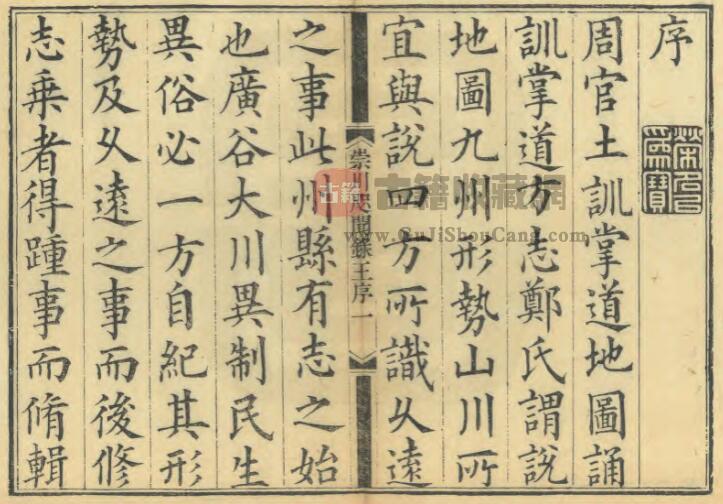 序
榮名㠯
爲寶
周官土訓掌道地圖誦
訓掌道方志鄭氏謂說
地圖九州形勢山川所
宜與說四方所識乆遠
崇川咫聞錄王序一
之事此州縣有志之始
也廣谷大川異制民生
異俗必一方自紀其形
勢及乆遠之事而後修
志乗者得踵事而脩輯
古籍 古籍收藏網
www.GuJiShouCang.com